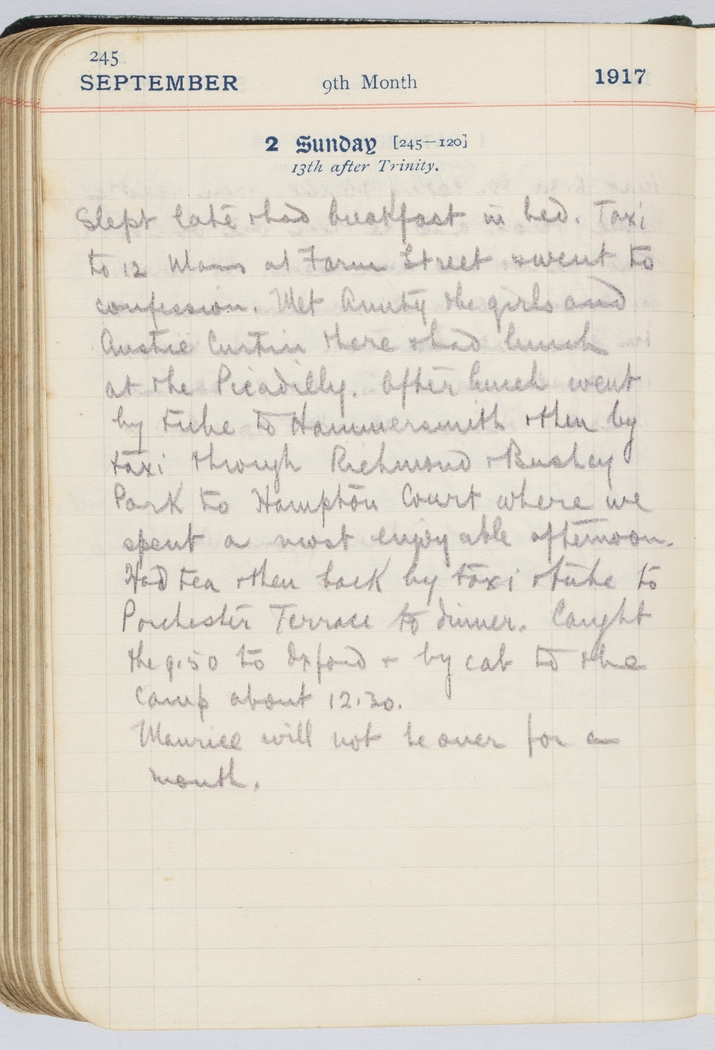 245
SEPTEMBER 9th Month 1917
2 Sunday [245—120]
13th after Trinity.
Slept late & had breakfast in bed. Taxi
to 12 Mass at Farm Street & went to
confession. Met Aunty the girls and
Austie Curtin there & had lunch
at the Picadilly. After lunch went
by tube to Hammersmith & then by
taxi through Richmond & Bushey
Park to Hampton Court where we
spent a most enjoyable afternoon.
Had tea & then back by taxi & tube to
Porchester Terrace to dinner. Caught
the 9.50 to Oxford & by cab to the
camp about 12.30.
Maurice will not be over for a
month.